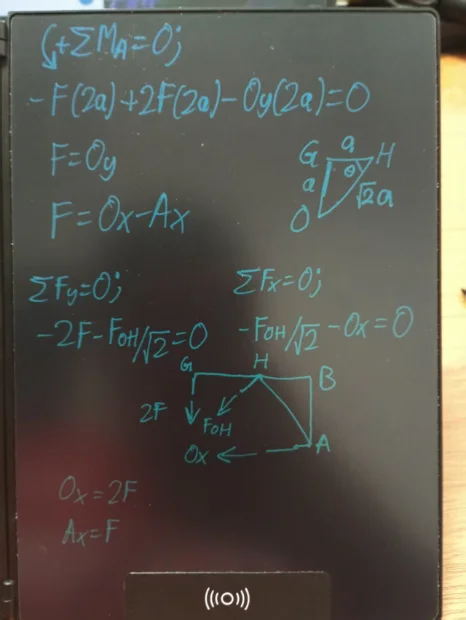 +ΣM_A=0;
-F(2a)+2F(2a)-Oy(2a)=0
F=Oy
F=Ox-Ax
G a H
a θ √2a
O
ΣFy=0;
ΣFx=0;
-2F-F_OH/√2=0
-F_OH/√2-Ox=0
G H B
2F F_OH
Ox A
Ox=2F
Ax=F